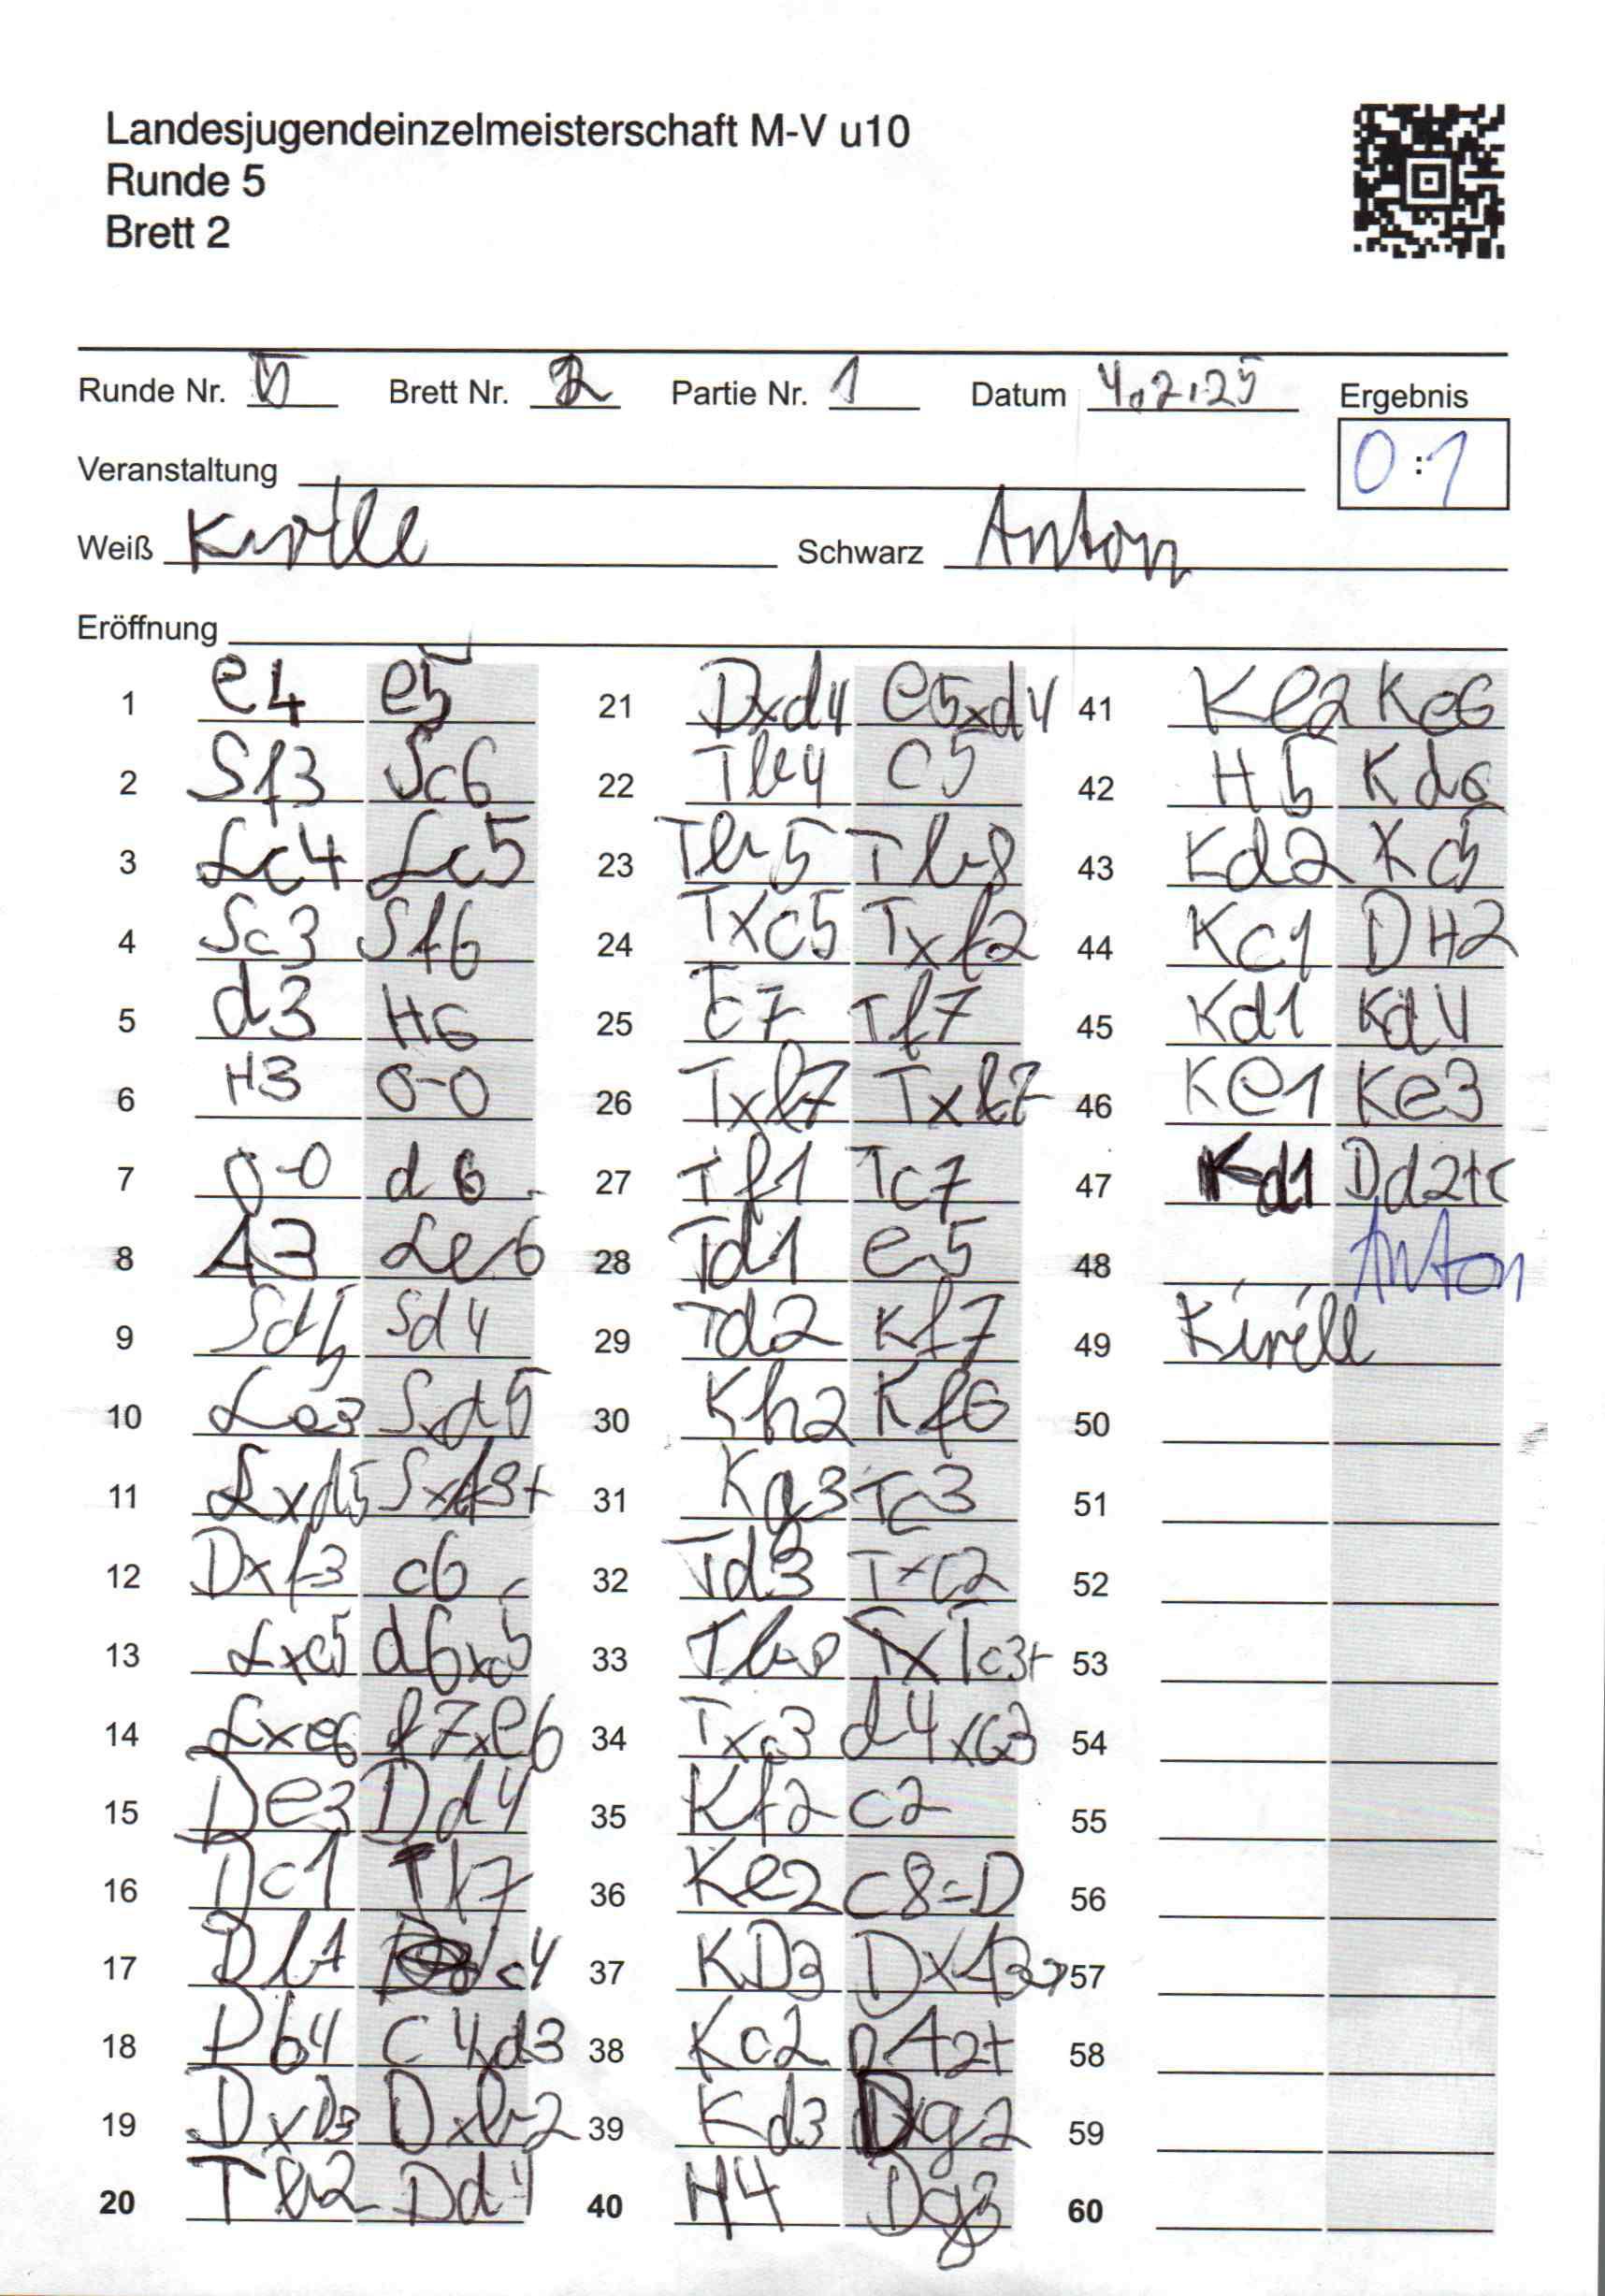 Landesjugendeinzelmeisterschaft M-V u10
Runde 5
Brett 2
Runde Nr. 5 Brett Nr. 2 Partie Nr. 1 Datum 4.2.25 Ergebnis
0:1
Veranstaltung
Weiß Kirill Schwarz Anton
Eröffnung
1 e4 e5
2 Sf3 Sc6
3 Lc4 Lc5
4 Sc3 Sf6
5 d3 H6
6 H3 0-0
7 0-0 d6
8 A3 Le6
9 Sd5 Sd4
10 Le3 Sxd5
11 Lxd5 Sxf3+
12 Dxf3 c6
13 Lxc5 d6xc5
14 Lxe6 f7xe6
15 De3 Dd4
16 Dc1 Tf7
17 Db1 c4
18 b4 c4xd3
19 DxD3 Dxb2
20 Tb2 Dd4
21 Dxd4 e5xd4
22 Tb4 c5
23 Tb5 Tb8
24 Txc5 Txf2
25 Tc7 Tf7
26 Txf7 Txf7
27 Tf1 Tc7
28 Td1 e5
29 Td2 Kf7
30 Kh2 Kf6
31 Kg3 Tc3
32 Td3 Txc2
33 Tc3+
34 Txc3 d4xc3
35 Kf2 c2
36 Ke2 c8=D
37 KD3 DxA3+
38 Kc2 DA2+
39 Kd3 Dxg2
40 H4 Dg3
41 Ke2 Ke6
42 H5 Kd6
43 Kd2 Kc5
44 Kc1 DH2
45 Kd1 Kd4
46 Ke1 Ke3
47 Kd1 Dd2+
48 Anton
49 Kirill
50
51
52
53
54
55
56
57
58
59
60